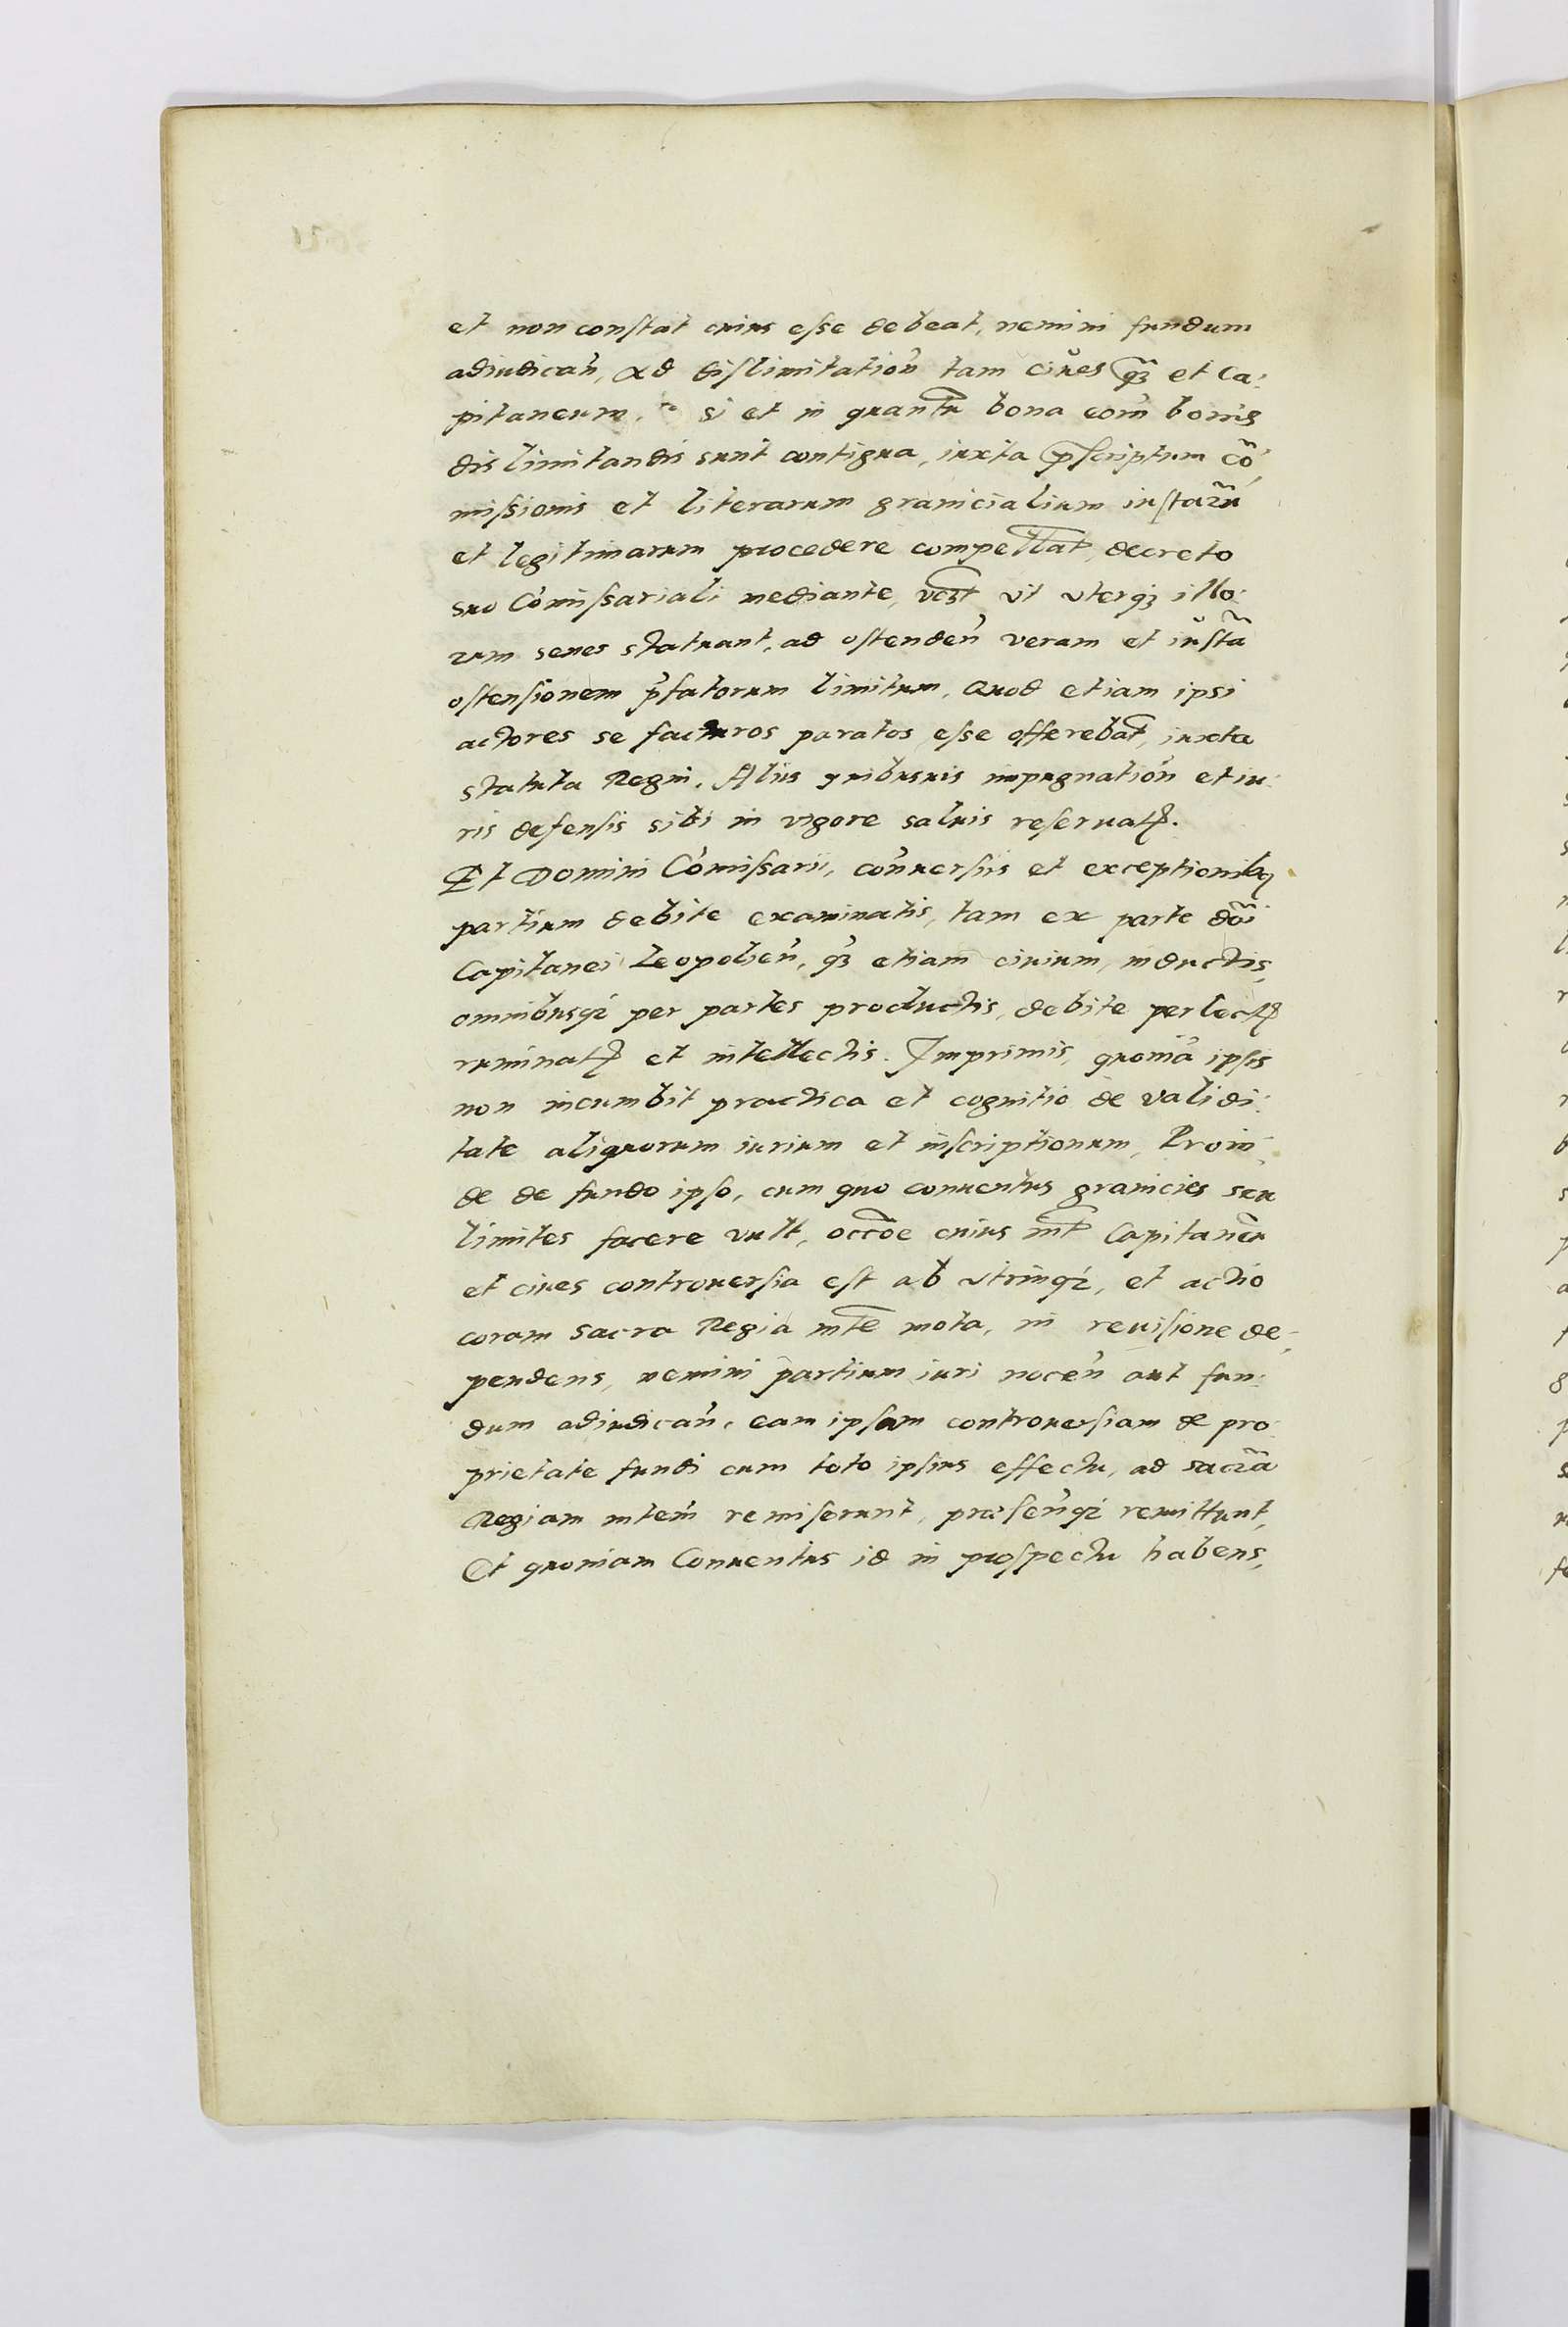 et non constat cuius esse debeat, nemini fundum
adiudican̄, Ad dislimitation̄ tam ciues q̄ꝫ et Ca:
pitaneum. si et in quantū bona eorū bonis
dislimitandis sunt contigua, iuxta p̄scriptum cō
missionis et literarum granicialium iustarū
et legitimarum procedere compellat, decreto
suo Cōmissariali mediante, vꝫt vt uterqꝫ illo:
rum senes statuant, ad ostenden̄ veram et iustā
ostensionem p̄fatorum limitum, Quod etiam ipsi
actores se facturos paratos esse offerebāt, iuxta
statuta Regni. Alijs quibusuis impugnation̄ et iu:
ris defensis sibi in vigore saluis reseruatꝭ.
Et Domini Cōmissarii, cōuersiis et exceptionibꝫ
partium debite examinatis, tam ex parte dn̄i
Capitanei Leopolien̄, qꝫ etiam ciuium, inductis,
omnibusqꝫ per partes productis, debite perlectꝭ
ruminatꝭ et intellectis. Imprimis, quoniā ipsis
non incumbit practica et cognitio de validi:
tate aliquorum iurium et inscriptionum, Proin
de de fundo ipso, cum quo conuentus granicies seu
limites facere vult, occōe cuius int̄ Capitaneū
et ciues controuersia est ab vtrinqꝫ, et actio
coram Sacra Regia mt̄e mota, in reuisione de:
pendens, nemini partium iuri nocen̄ aut fun:
dum adiudican̄, eam ipsam controuersiam de pro
prietate fundi cum toto ipsius effectu, ad sacrā
Regiam mtem̄ remiserunt, præsen̄qꝫ remittunt,
Et quoniam Conuentus id in prospectu habens,